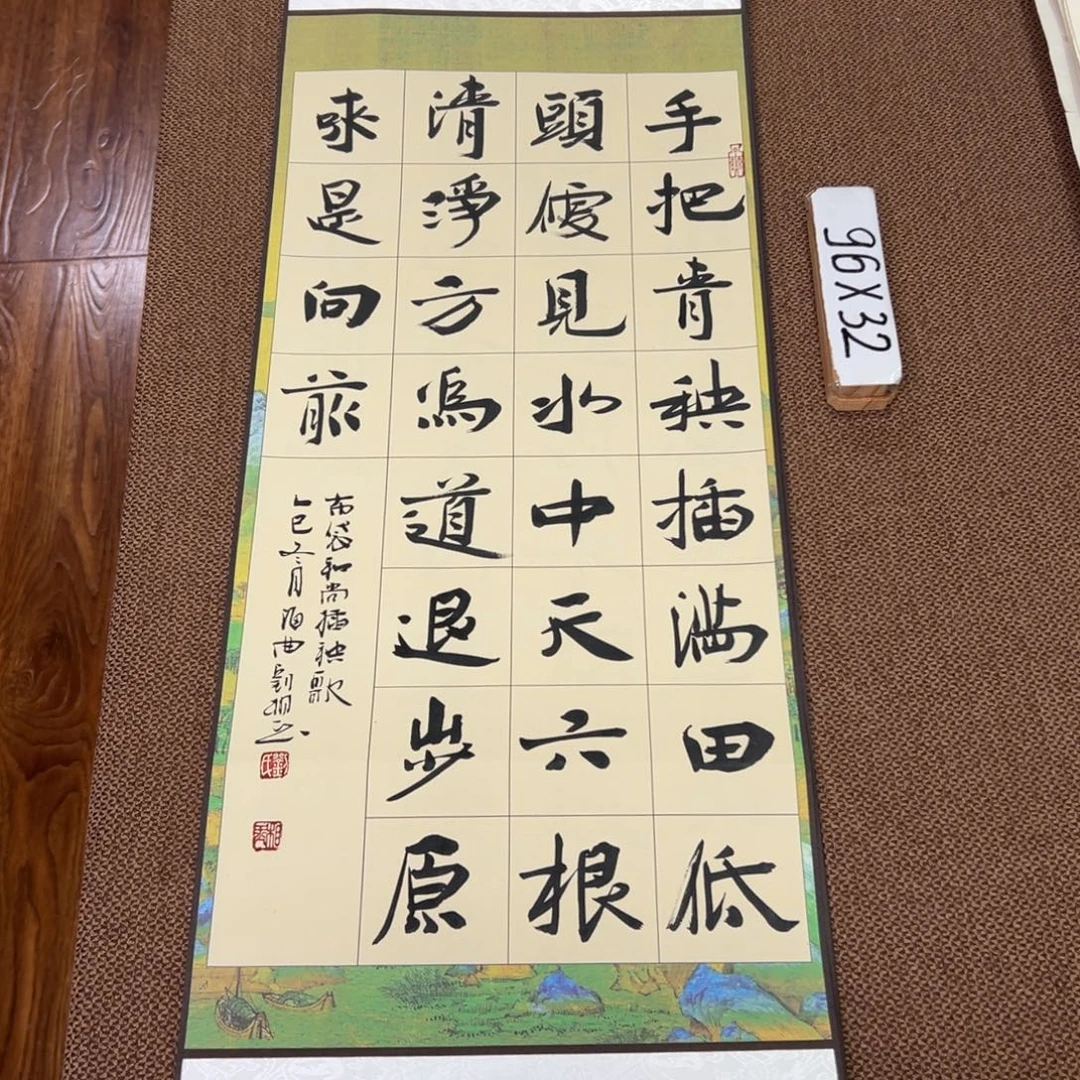 手把青秧插滿田低
頭便見水中天六根
清淨方為道退步原
來是向前
布袋和尚插秧歌
乙巳冬月海曲劉相
劉氏
96X32